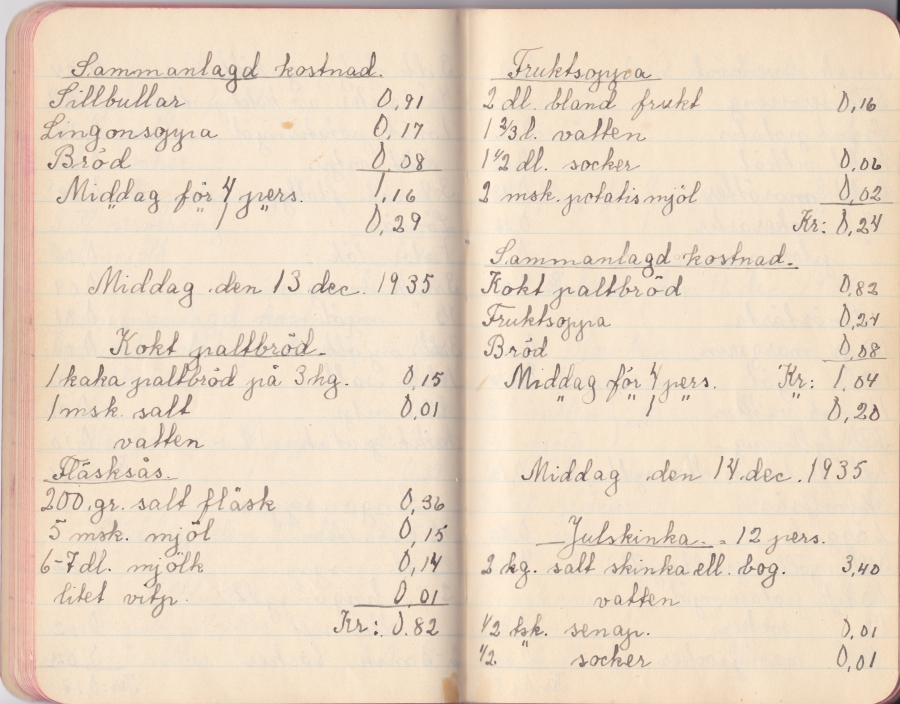 Sammanlagd kostnad.
Sillbullar 0,91
Lingonsoppa 0,17
Bröd 0,08
Middag för 4 pers. 1,16
" " 1 " 0,29
Middag den 13 dec. 1935
Kokt paltbröd.
1 kaka paltbröd på 3 hg. 0,15
1 msk. salt 0,01
vatten
Fläsksås.
200 gr. salt fläsk 0,36
5 msk. mjöl 0,15
6-7 dl. mjölk 0,14
litet vitp. 0,01
Kr: 0,82
Fruktsoppa
2 dl. bland frukt 0,16
1 2/3 l. vatten
1 1/2 dl. socker 0,06
2 msk. potatismjöl 0,02
Kr: 0,24
Sammanlagd kostnad.
Kokt paltbröd 0,82
Fruktsoppa 0,24
Bröd 0,08
Middag för 4 pers. Kr: 1,04
" " 1 " " 0,20
Middag den 14 dec. 1935
Julskinka. = 12 pers.
2 kg. salt skinka ell. bog. 3,40
vatten
1/2 tsk. senap. 0,01
1/2 " socker 0,01